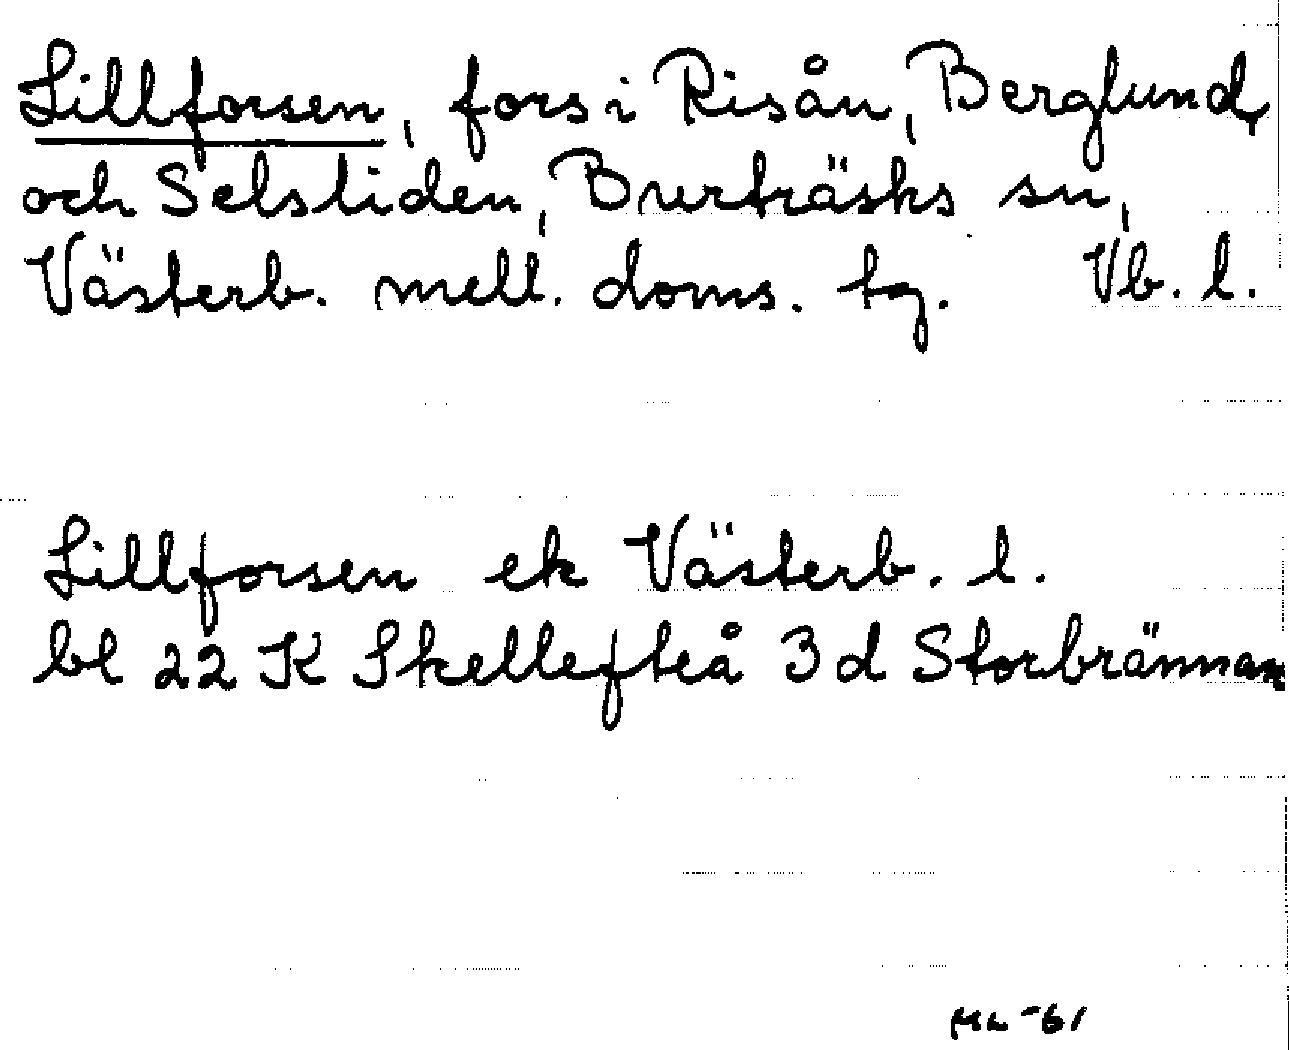 Lillforsen, fors i Risån, Berglund,
och Selsliden, Burträsks sn,
Västerb. mell. doms. tg. Vb. l.
Lillforsen ek Västerb. l.
bl 22 K Skellefteå 3 d Storbrännan
ML -61